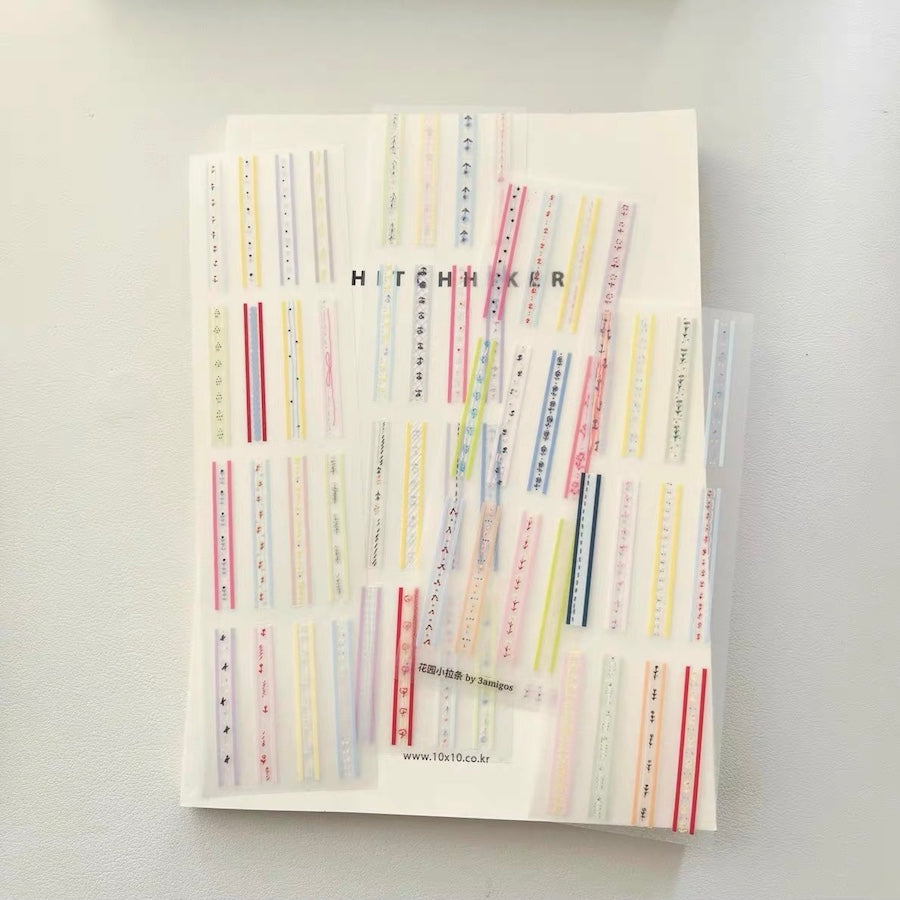 HITCHHIKER
花园小拉条 by 3amigos
www.10x10.co.kr